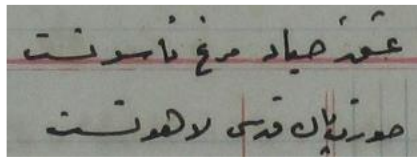 عشق صیاد مرغ ناسوتست
حوزتیان قدس لاهوتست